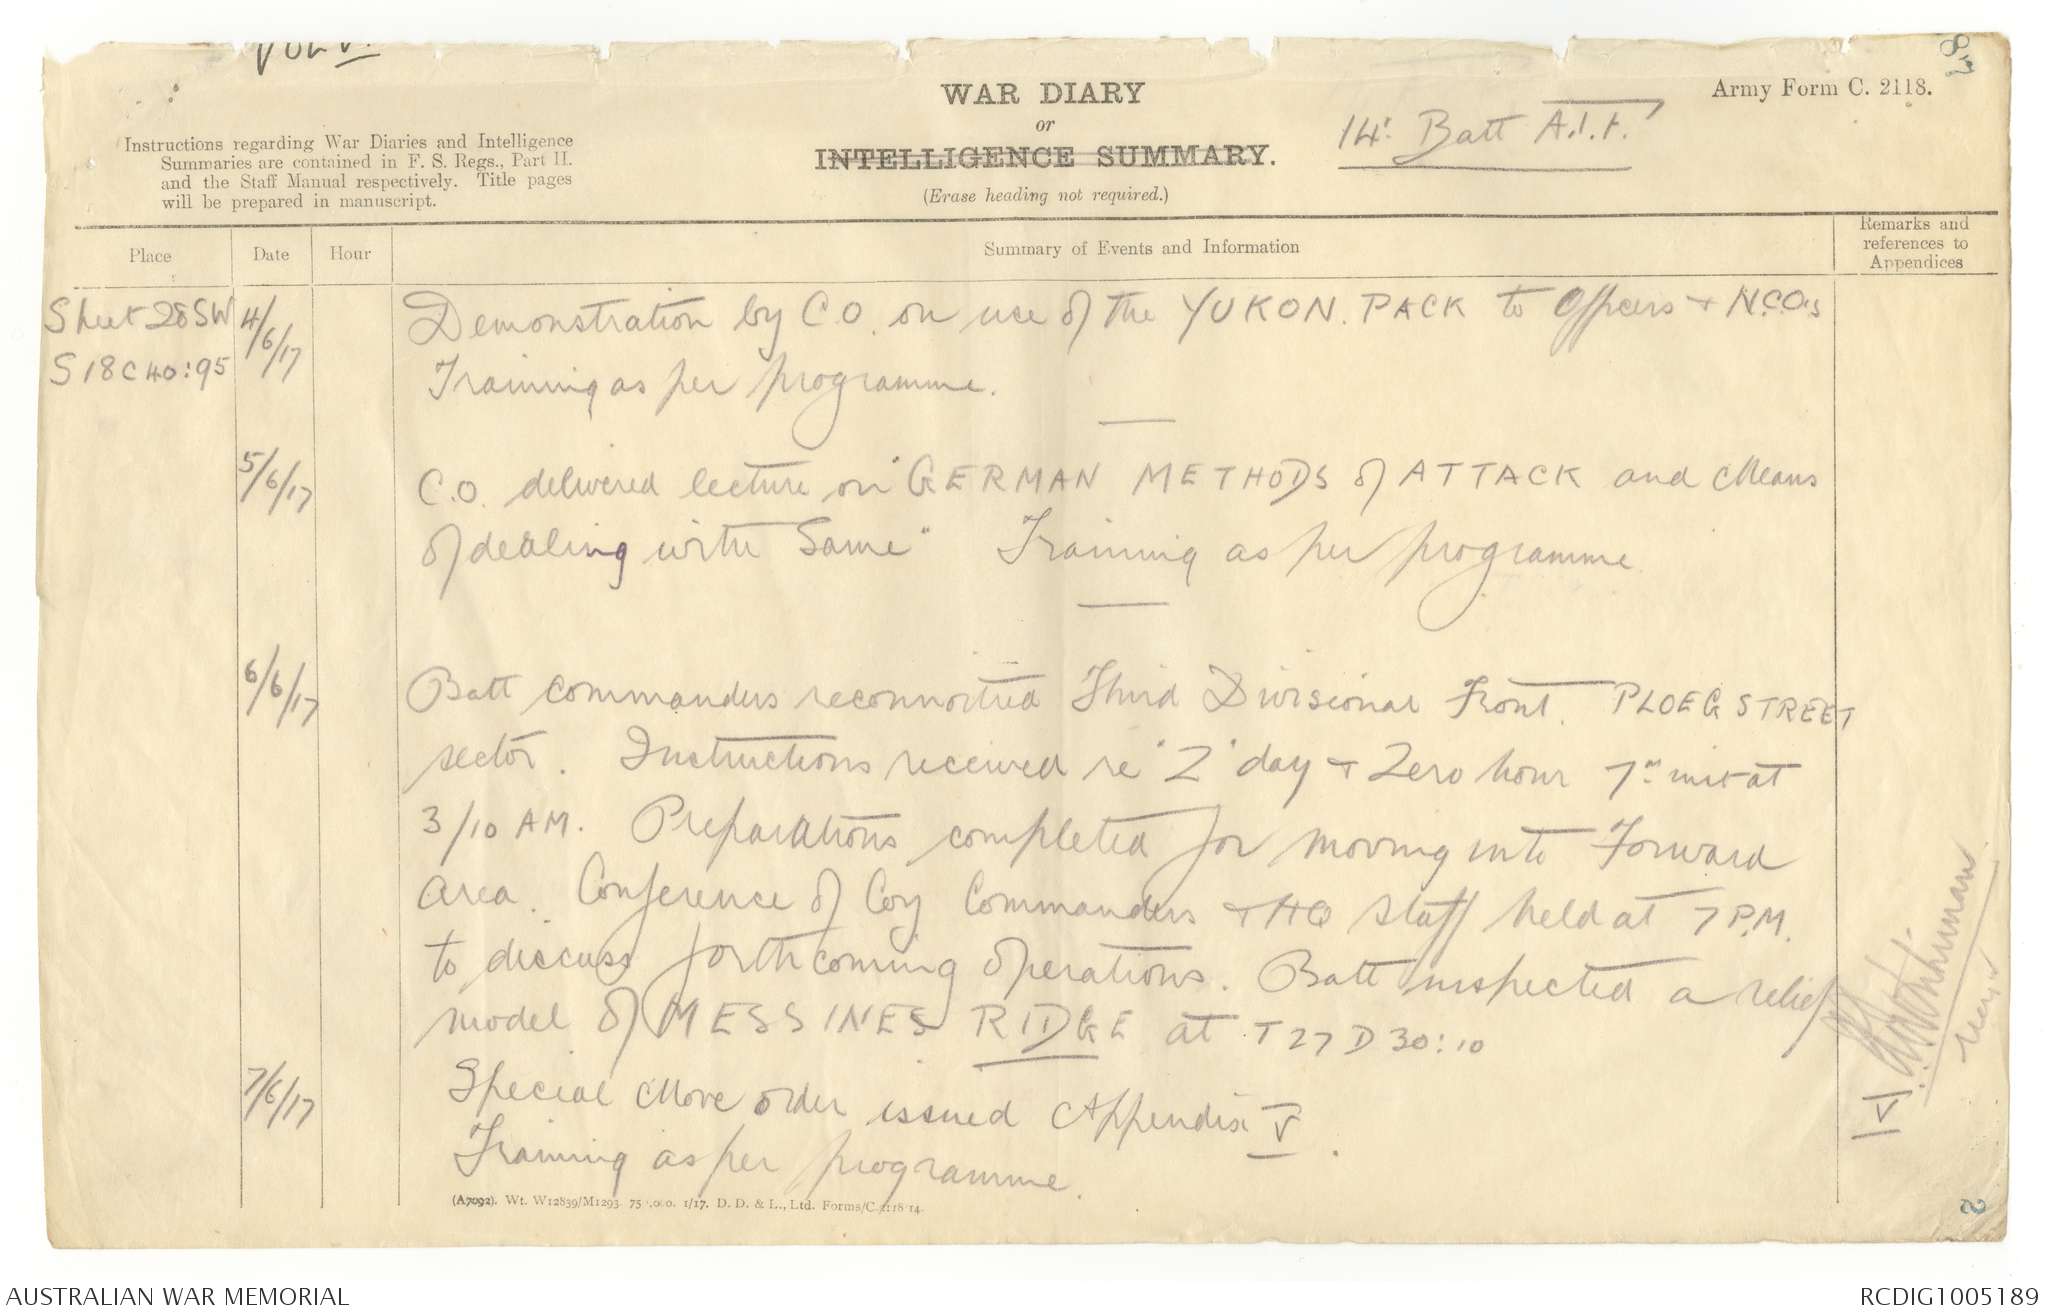 87
WAR DIARY
or
INTELLIGENCE SUMMARY.
(Erase heading not required.)
Army Form C. 2118.
14: Batt A.I.F.
Instructions regarding War Diaries and Intelligence
Summaries are contained in F. S. Regs., Part II.
and the Staff Manual respectively. Title pages
will be prepared in manuscript.
Place
Date
Hour
Summary of Events and Information
Remarks and
references to
Appendices
Sheet 28SW
S18C40:95
4/6/17
Demonstration by C.O. on use of the YUKON. PACK to Officers + N.C.O's
Training as per programme.
5/6/17
C.O. delivered lecture on "GERMAN METHODS of ATTACK and Means
of dealing with Same" Training as per programme
6/6/17
Batt commanders reconnoitred Third Divisional Front. PLOEGSTREET
sector. Instructions received re "Z" day + Zero hour 7" inst at
3/10 AM. Preparations completed for moving into Forward
area. Conference of Coy Commanders + HQ Staff held at 7 P.M.
to discuss forthcoming operations. Batt inspected a relief
model of MESSINES RIDGE at T27D30:10
7/6/17
Special Move order issued Appendix V.
Training as per programme.
V
(A7092). Wt. W12839/M1293 75 ,0 0. 1/17. D. D. & L., Ltd. Forms/C.2118/14.
2
AUSTRALIAN WAR MEMORIAL
RCDIG1005189